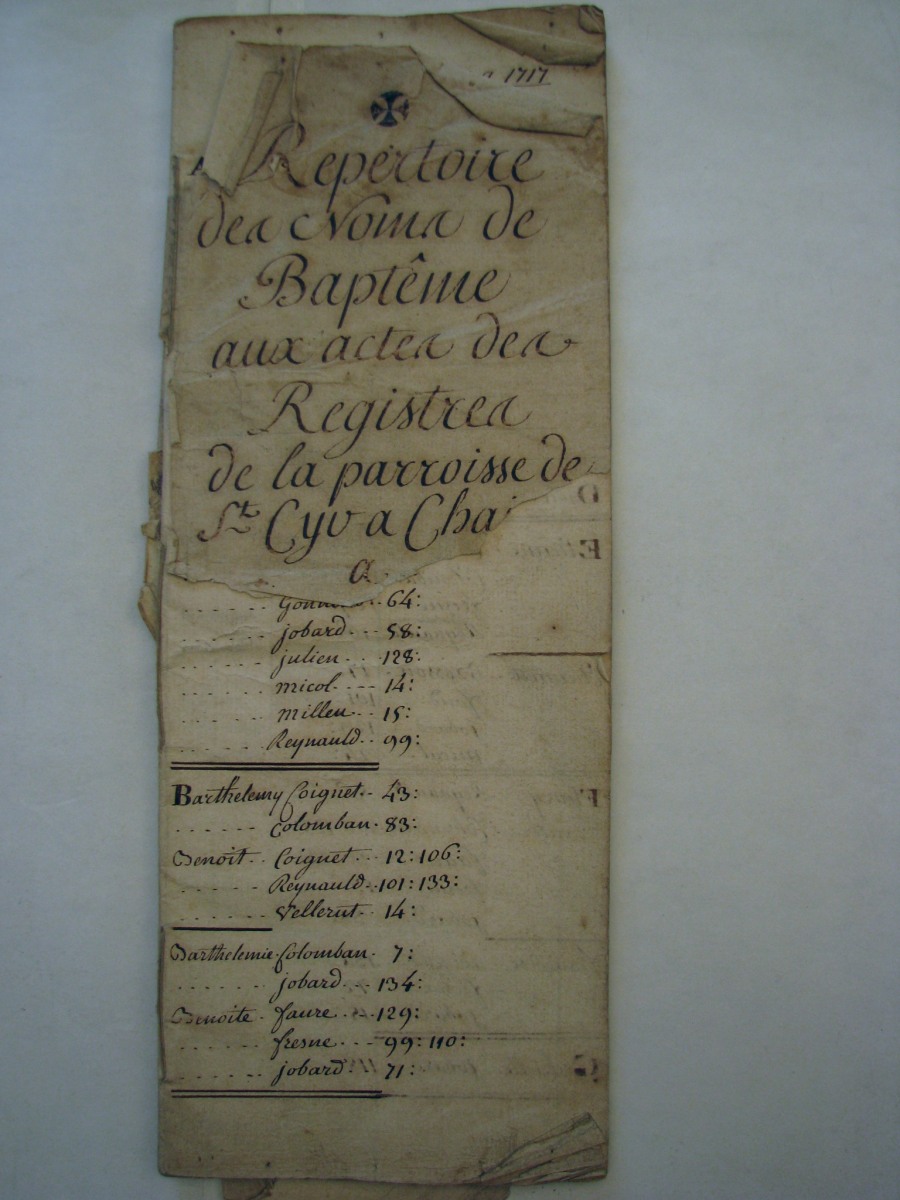 a 1717
Repertoire
des Noms de
Baptême
aux actes des
Registres
de la parroisse de
St. Cyr a Cha
a
. . . . . . 64:
. . . . . . jobard. . . 58:
. . . . . . julien. . . 128:
. . . . . . micol. . . . 14:
. . . . . . Millen. . . 15:
. . . . . . Reynauld. . 99:
Barthelemy Coignet. . 43:
. . . . . . Colomban. 83:
Benoit. . Coignet. . . 12: 106:
. . . . . . Reynauld. . 101: 133:
. . . . . . Vellerut. . 14:
Barthelemie. Colomban. 7:
. . . . . . jobard. . . 134:
Benoite. faure. . . . 129:
. . . . . . fresne. . . . 99: 110:
. . . . . . jobard. 71:
D
E
F
G